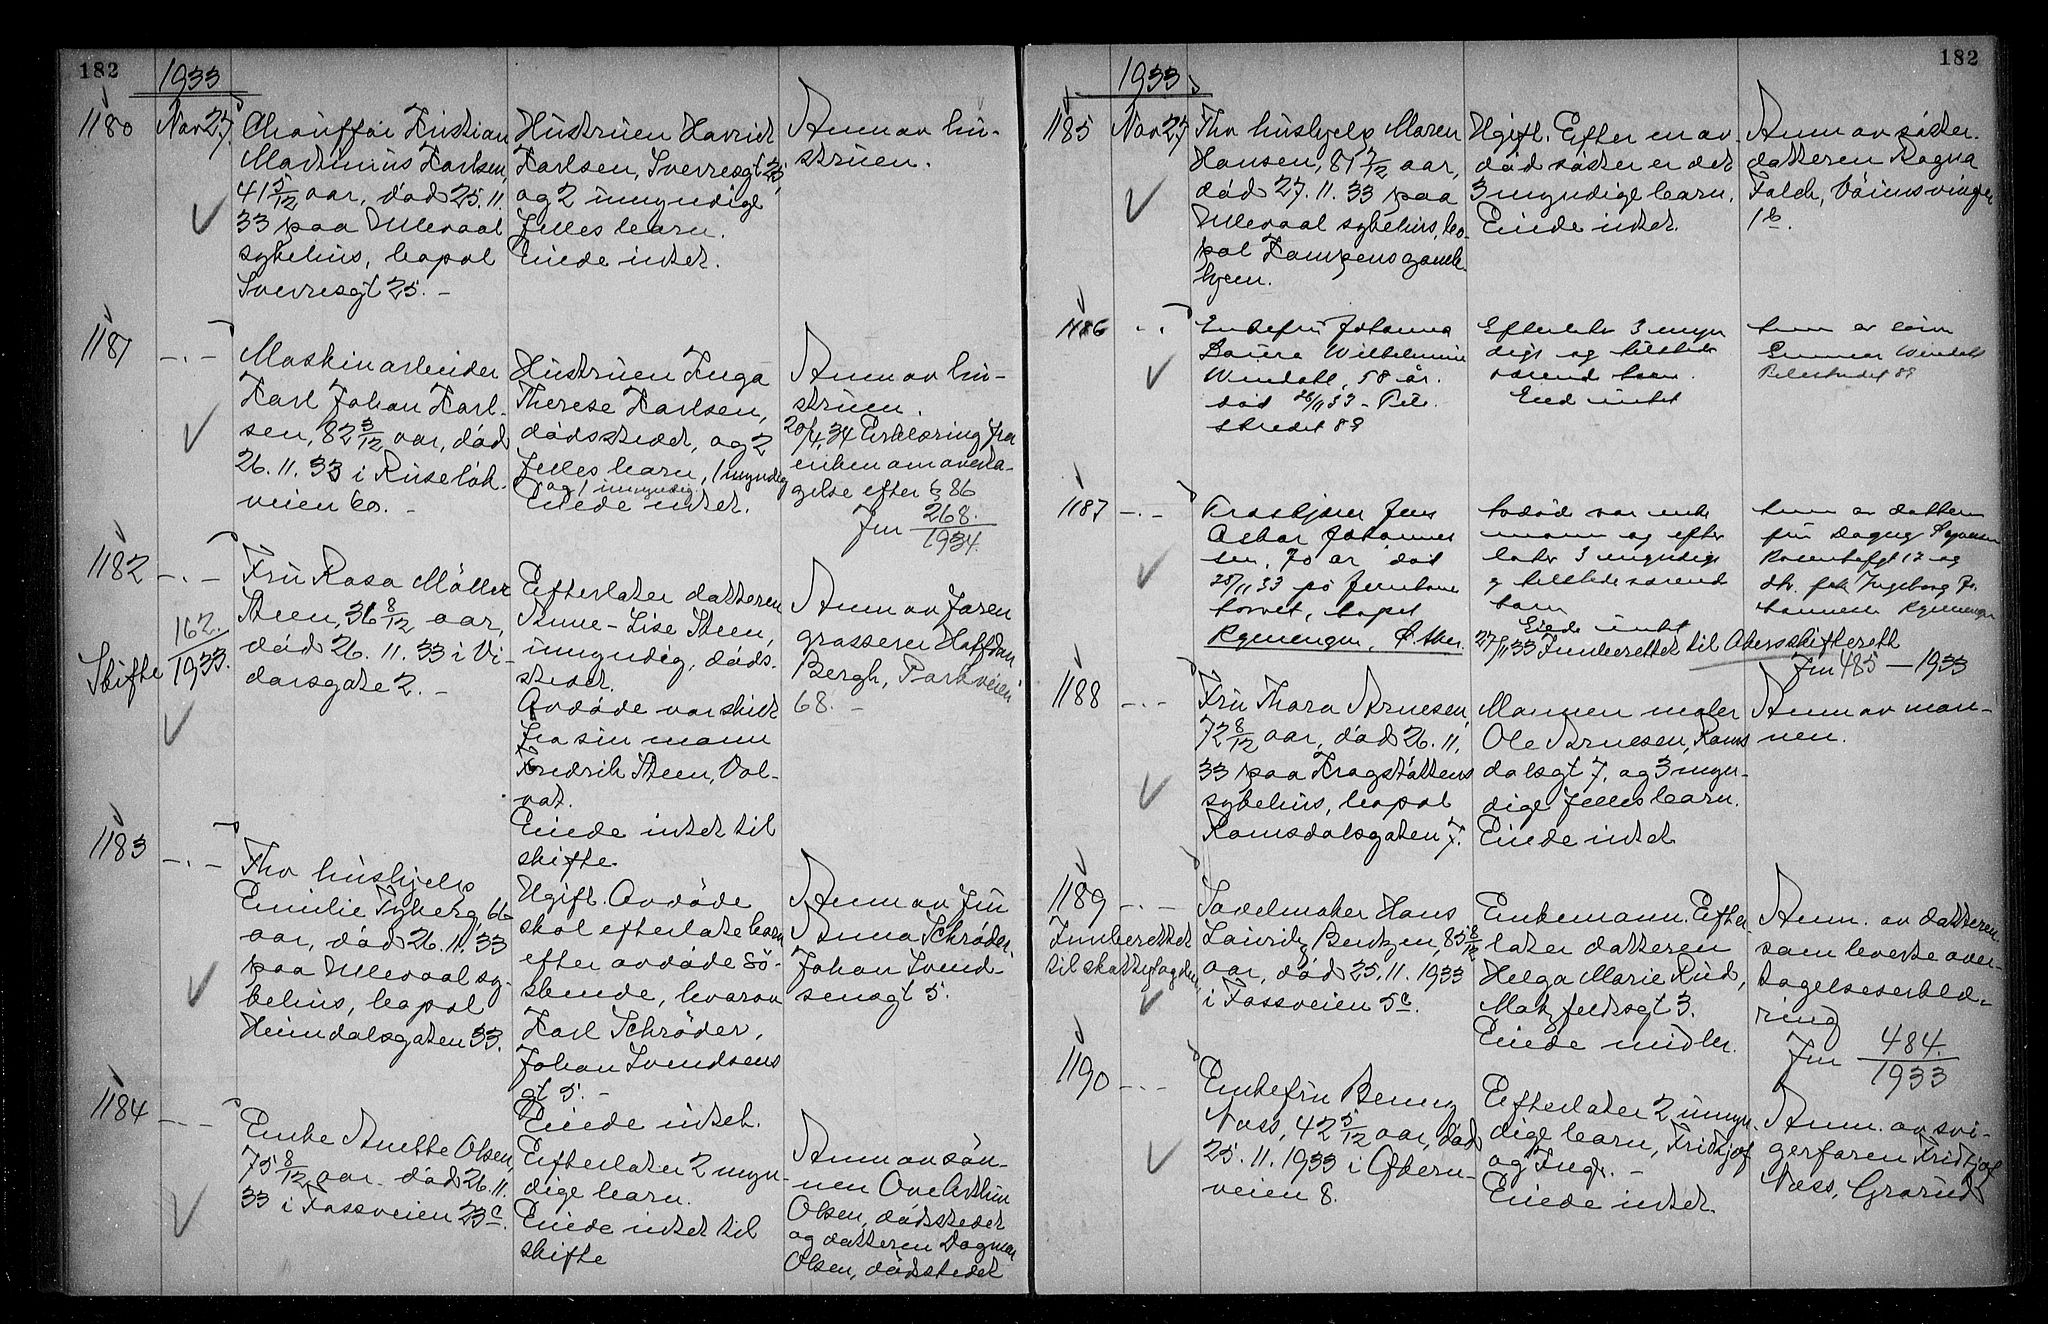 182
1933
1180
Nov 27.
Chauffør Kristian
Martinius Karlsen,
41 5/12 aar, død 25.11.
33 paa Ullevaal
sykehus, bopel
Sverresgt 25. –
Hustruen
Karlsen, Sverresgt 25,
og 2 umyndige
felles barn.
Eiede intet.
Anm av hu-
struen.
1181
–.–
Maskinarbeider
Karl Johan Karl-
sen, 82 3/12 aar, død
26.11.33 i Ruseløk-
veien 60. –
Hustruen Inga
Therese Karlsen,
dødsstedet, og 2
felles barn, 1 myndig
og 1 umyndig
Eiede intet.
Anm av hu-
struen.
20/4.34 Erklæring fra
enken om overta-
gelse efter § 86
Jnr 268.
1934.
1182
–.–
162.
Skifte 1933.
Fru Rosa Møller
Steen, 36 8/12 aar,
død 26.11.33 i Vi-
darsgate 2. –
Efterlater datteren
Anne-Lise Steen,
umyndig, døds-
stedet.
Avdøde var skilt
fra sin mann
Fredrik Steen, Vol-
vat.
Eiede intet til
skifte.
Anm av faren
grosserer Halfdan
Bergh, Parkveien
68. –
1183
–.–
Fhv hushjelp
Emilie Nyberg 66
aar, død 26.11.33
paa Ullevaal sy-
kehus, bopel
Heimdalsgaten 33.
Ugift. Avdøde
skal efterlate barn
efter avdøde sø-
skende, hvorav
Karl Schrøder,
Johan Svendsens
gt 5. –
Eiede intet.
Anm av fru
Anna Schrøder,
Johan Svend-
sensgt 5.
1184
–.–
Enke Anette Olsen,
75 8/12 aar – død 26.11.
33 i Fossveien 23c.
Efterlater 2 myn-
dige barn.
Eiede intet til
skifte
Anm av søn-
nen Ove Arthur
Olsen, dødsstedet
og datteren Dagmar
Olsen, dødsstedet
182
1933
1185
Nov 27
Fhv hushjelp Maren
Hansen, 81 7/12 aar,
død 27.11.33 paa
Ullevaal sykehus, bo-
pel Kampens gamle-
hjem.
Ugift. Efter en av-
død søster er det
3 myndige barn.
Eiede intet.
Anm av søster-
datteren Ragna
Falch, Vøiensvingen
1b.
1186
–.–
Enkefru Johanna
Laura Wilhelmine
Wendahl, 58 år.
død 26/11 33 – Pile-
stredet 89
Efterlater 3 myn
dige og tilstede
værende barn.
Eied intet
Anm av sønn
Gunnar Wendahl
Pilestredet 89
1187
–.–
Jens
Oskar Johannes
sen, 70 år død
25/11 33 på Jernbane
torvet, bopel
Avdøde var enke
mann og efter
later 3 myndige
og tilstedeværende
barn
Eiede intet
27/11 33 Innberettet til Akersskifterett
Jnr 485 – 1933
Anm av datteren
fru Dagny
17 og
Ingeborg Jo
hannessen
1188
–.–
Fru Thora Arnesen,
72 8/12 aar, død 26.11.
33 paa Krogstøttens
sykehus, bopel
Romsdalsgaten 7.
Mannen maler
Ole Arnesen, Roms
dalsgt 7, og 3 myn-
dige felles barn.
Eiede intet
Anm av man-
nen.
1189
–.–
Innberettet
til skattefogden
Sadelmaker Hans
Lauritz Berntzen, 85 8/12
aar, død 25.11.1933
i Fossveien 5c.
Enkemann. Efter-
later datteren
Helga Marie Rud,
Motzfeldtsgt 3.
Eiede midler.
Anm. av datteren
som leverte over-
tagelseserklæ-
ring
Jnr 484.
1933
1190
–.–
Enkefru Benny
Næss, 42 5/12 aar, død
25.11.1933 i
veien 8.
Efterlater 2 umyn-
dige barn, Fridtjof
og Inger. –
Eiede intet.
Anm. av svi-
gerfaren Fridtjof
Næss, Grorud